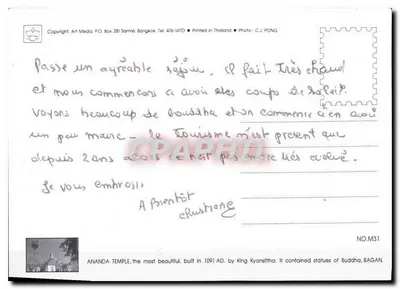 Copyright: Art Media, P.O. Box 281 Samre, Bangkok. Tel: 476-1470 • Printed in Thailand • Photo: C.J. PONG
Passe un agréable séjour. il fait très chaud
et nous commencons a avoir des coups de soleil.
Voyons beaucoup de bouddha et on commence à en avoir
un peu marre - le Tourisme n'est présent que
depuis 2 ans alors ce n'est pas très évolué.
Je vous embrasse
A Bientôt
Christiane
CPAPHIL
NO.M31
ANANDA TEMPLE, the most beautiful, built in 1091 AD. by King Kyansittha. It contained statues of Buddha, BAGAN.